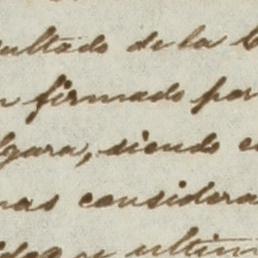 sultado de la
firmado por
gara, siendo
nas considera
se ultim